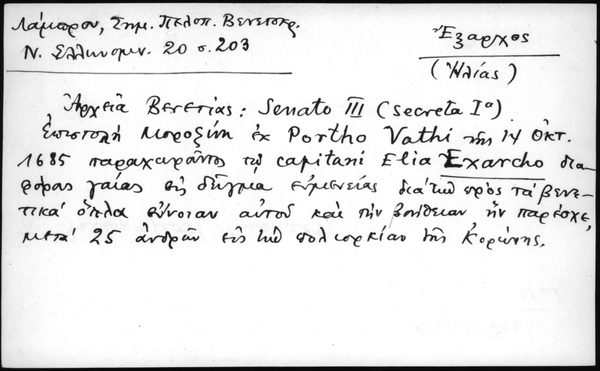 Λάμπρου, Σημ. Πελοπ. Βενετοκρ.
Ν. Ἑλληνομν. 20 σ. 203
Ἔξαρχος
(Ἠλίας)
Ἀρχεῖα Βενετίας: Senato III (secreta Iα)
Ἐπιστολὴ Μοροζίνη ἐκ Portho Vathi τῆς 14 Ὀκτ.
1685 παραχωροῦντος τῷ capitani Elia Exarcho δια-
φόρους γαίας εἰς δεῖγμα εὐμενείας διὰ τὴν πρὸς τὰ βενε-
τικὰ ὅπλα εὔνοιαν αὐτοῦ καὶ τὴν βοήθειαν ἣν παρέσχε,
μετὰ 25 ἀνδρῶν εἰς τὴν πολιορκίαν τῆς Κορώνης.